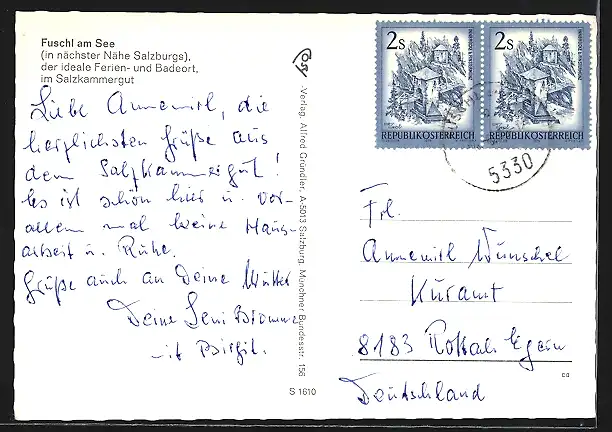 Fuschl am See
(in nächster Nähe Salzburgs),
der ideale Ferien- und Badeort,
im Salzkammergut
Liebe Annemirl, die
herzlichsten Grüße aus
dem Salzkammergut!
Es ist schön hier u. vor
allem mal keine Haus-
arbeit u. Ruhe.
Grüße auch an Deine Mutter
Deine
mit Birgit.
-Verlag, Alfred Gründler, A-5013 Salzburg, Münchner Bundesstr. 156
S 1610
2s
REPUBLIK ÖSTERREICH
2s
REPUBLIK ÖSTERREICH
5330
Frl.
Annemirl Wunschel
Kuramt
8183 Rottach Egern
Deutschland